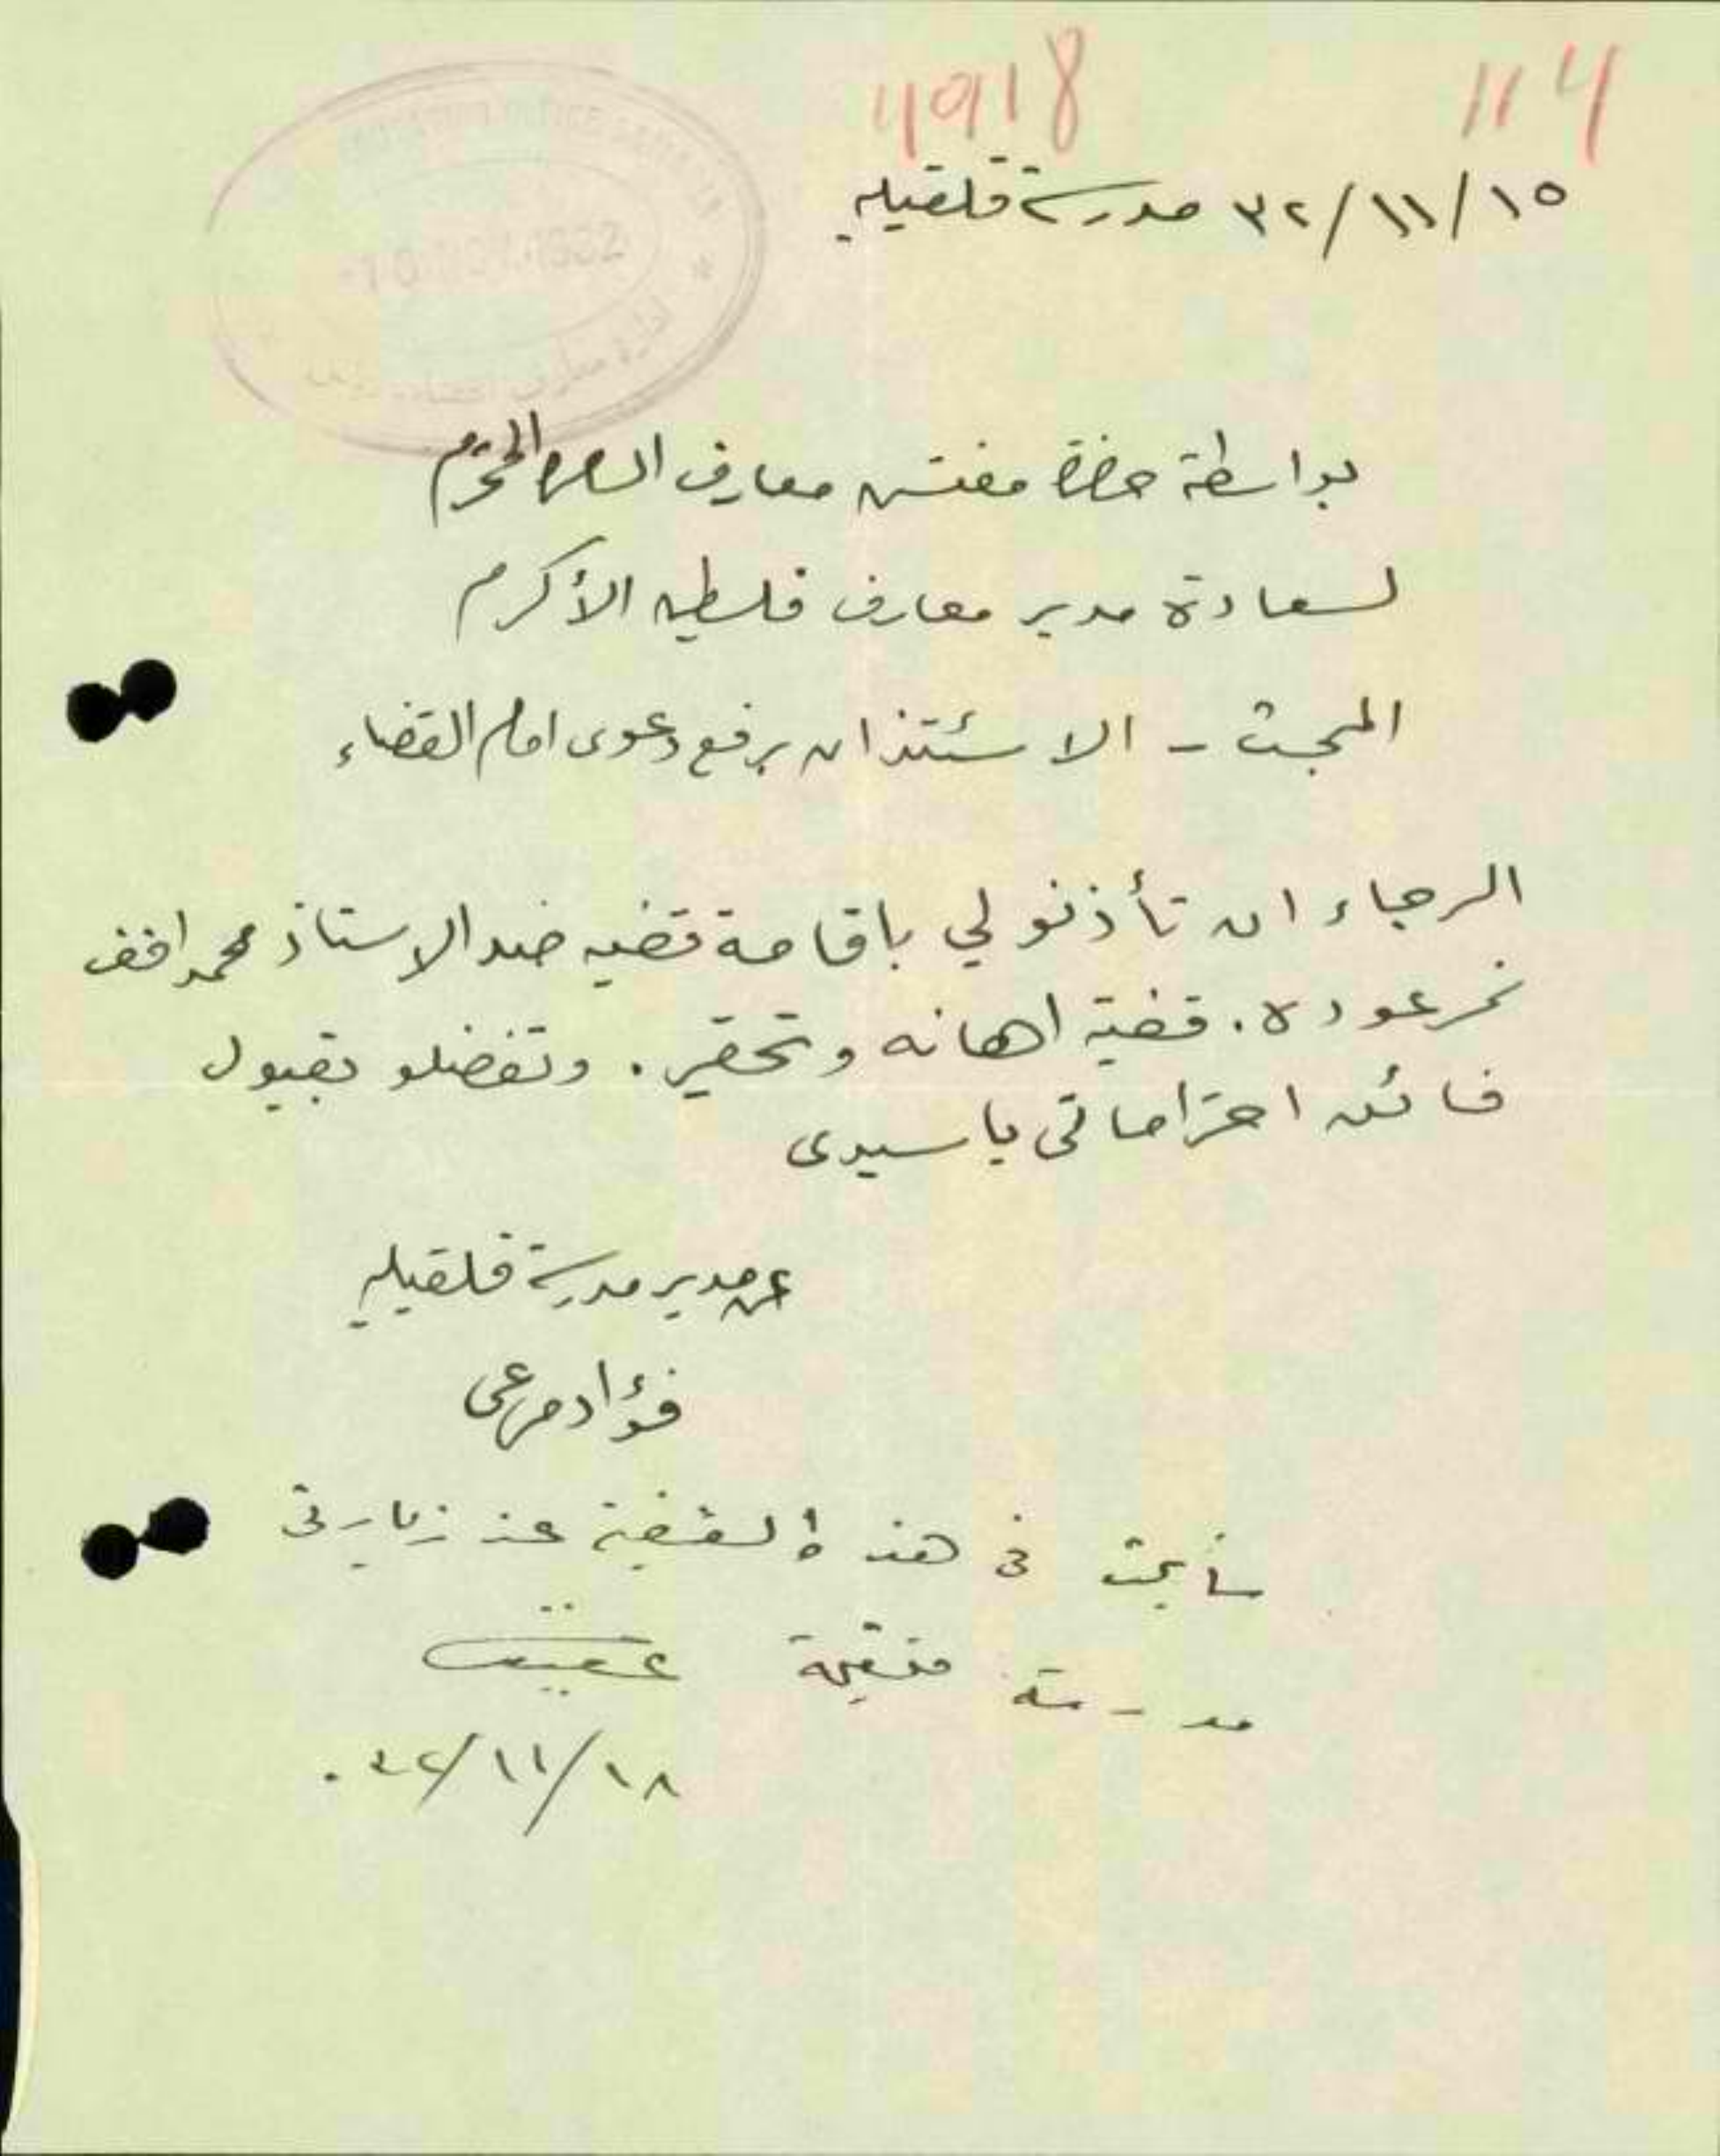 114
١٥/١١/٣٢ مدرسة قلقيليه
بواسطة حضرة مفتش معارف المحترم
لسعادة مدير معارف فلسطين الأكرم
المبحث - الاستئذان برفع دعوى امام القضاء
الرجاء ان تأذنو لي باقامة قضيه ضد الاستاذ محمد افندي
قضية اهانه وتحقير. وتفضلو بقبول
فائق احتراماتي يا سيدي
عن مدير مدرسة قلقيليه
فؤاد مرعي
سأبحث في هذه القضية عند زيارتي
مدرسة قلقيلية
١٨/١١/٣٢.